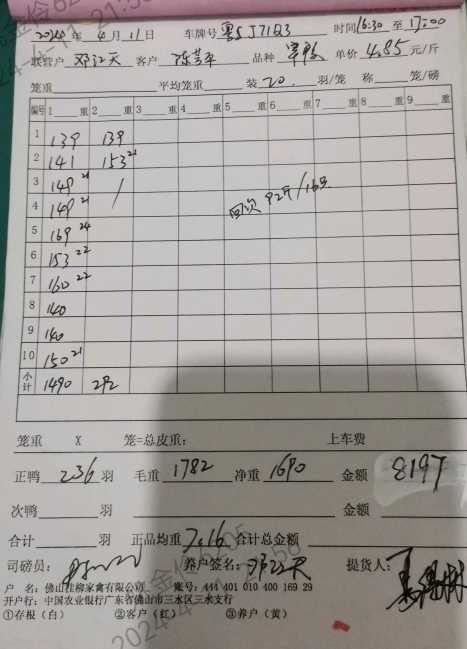 2024 年 4 月 11 日 车牌号 粤SJ71Q3 时间 16:30 至 17:00
联营户 邓江天 客户 品种 单价 4.85 元/斤
笼重: 平均笼重 装 20 羽/笼 称 笼/磅
编号 1 重 2 重 3 重 4 重 5 重 6 重 7 重 8 重 9 重
1 139 139
2 141 153 21
3 149 21
4 149 21
回次 92斤/16只
5 169 24
6 153 22
7 160 22
8 140
9 140
10 150 21
小计 1490 292
笼重 X 笼=总皮重: 上车费
正鸭 236 羽 毛重 1782 净重 1690 金额 8197
次鸭 羽 金额
合计 羽 正品均重 7.16 合计总金额
司磅员: 养户签名: 邓江天 提货人:
户 名: 佛山桂柳家禽有限公司 账号: 444 401 010 400 169 29
开户行: 中国农业银行广东省佛山市三水区三水支行
①存根(白) ②客户(红) ③养户(黄)